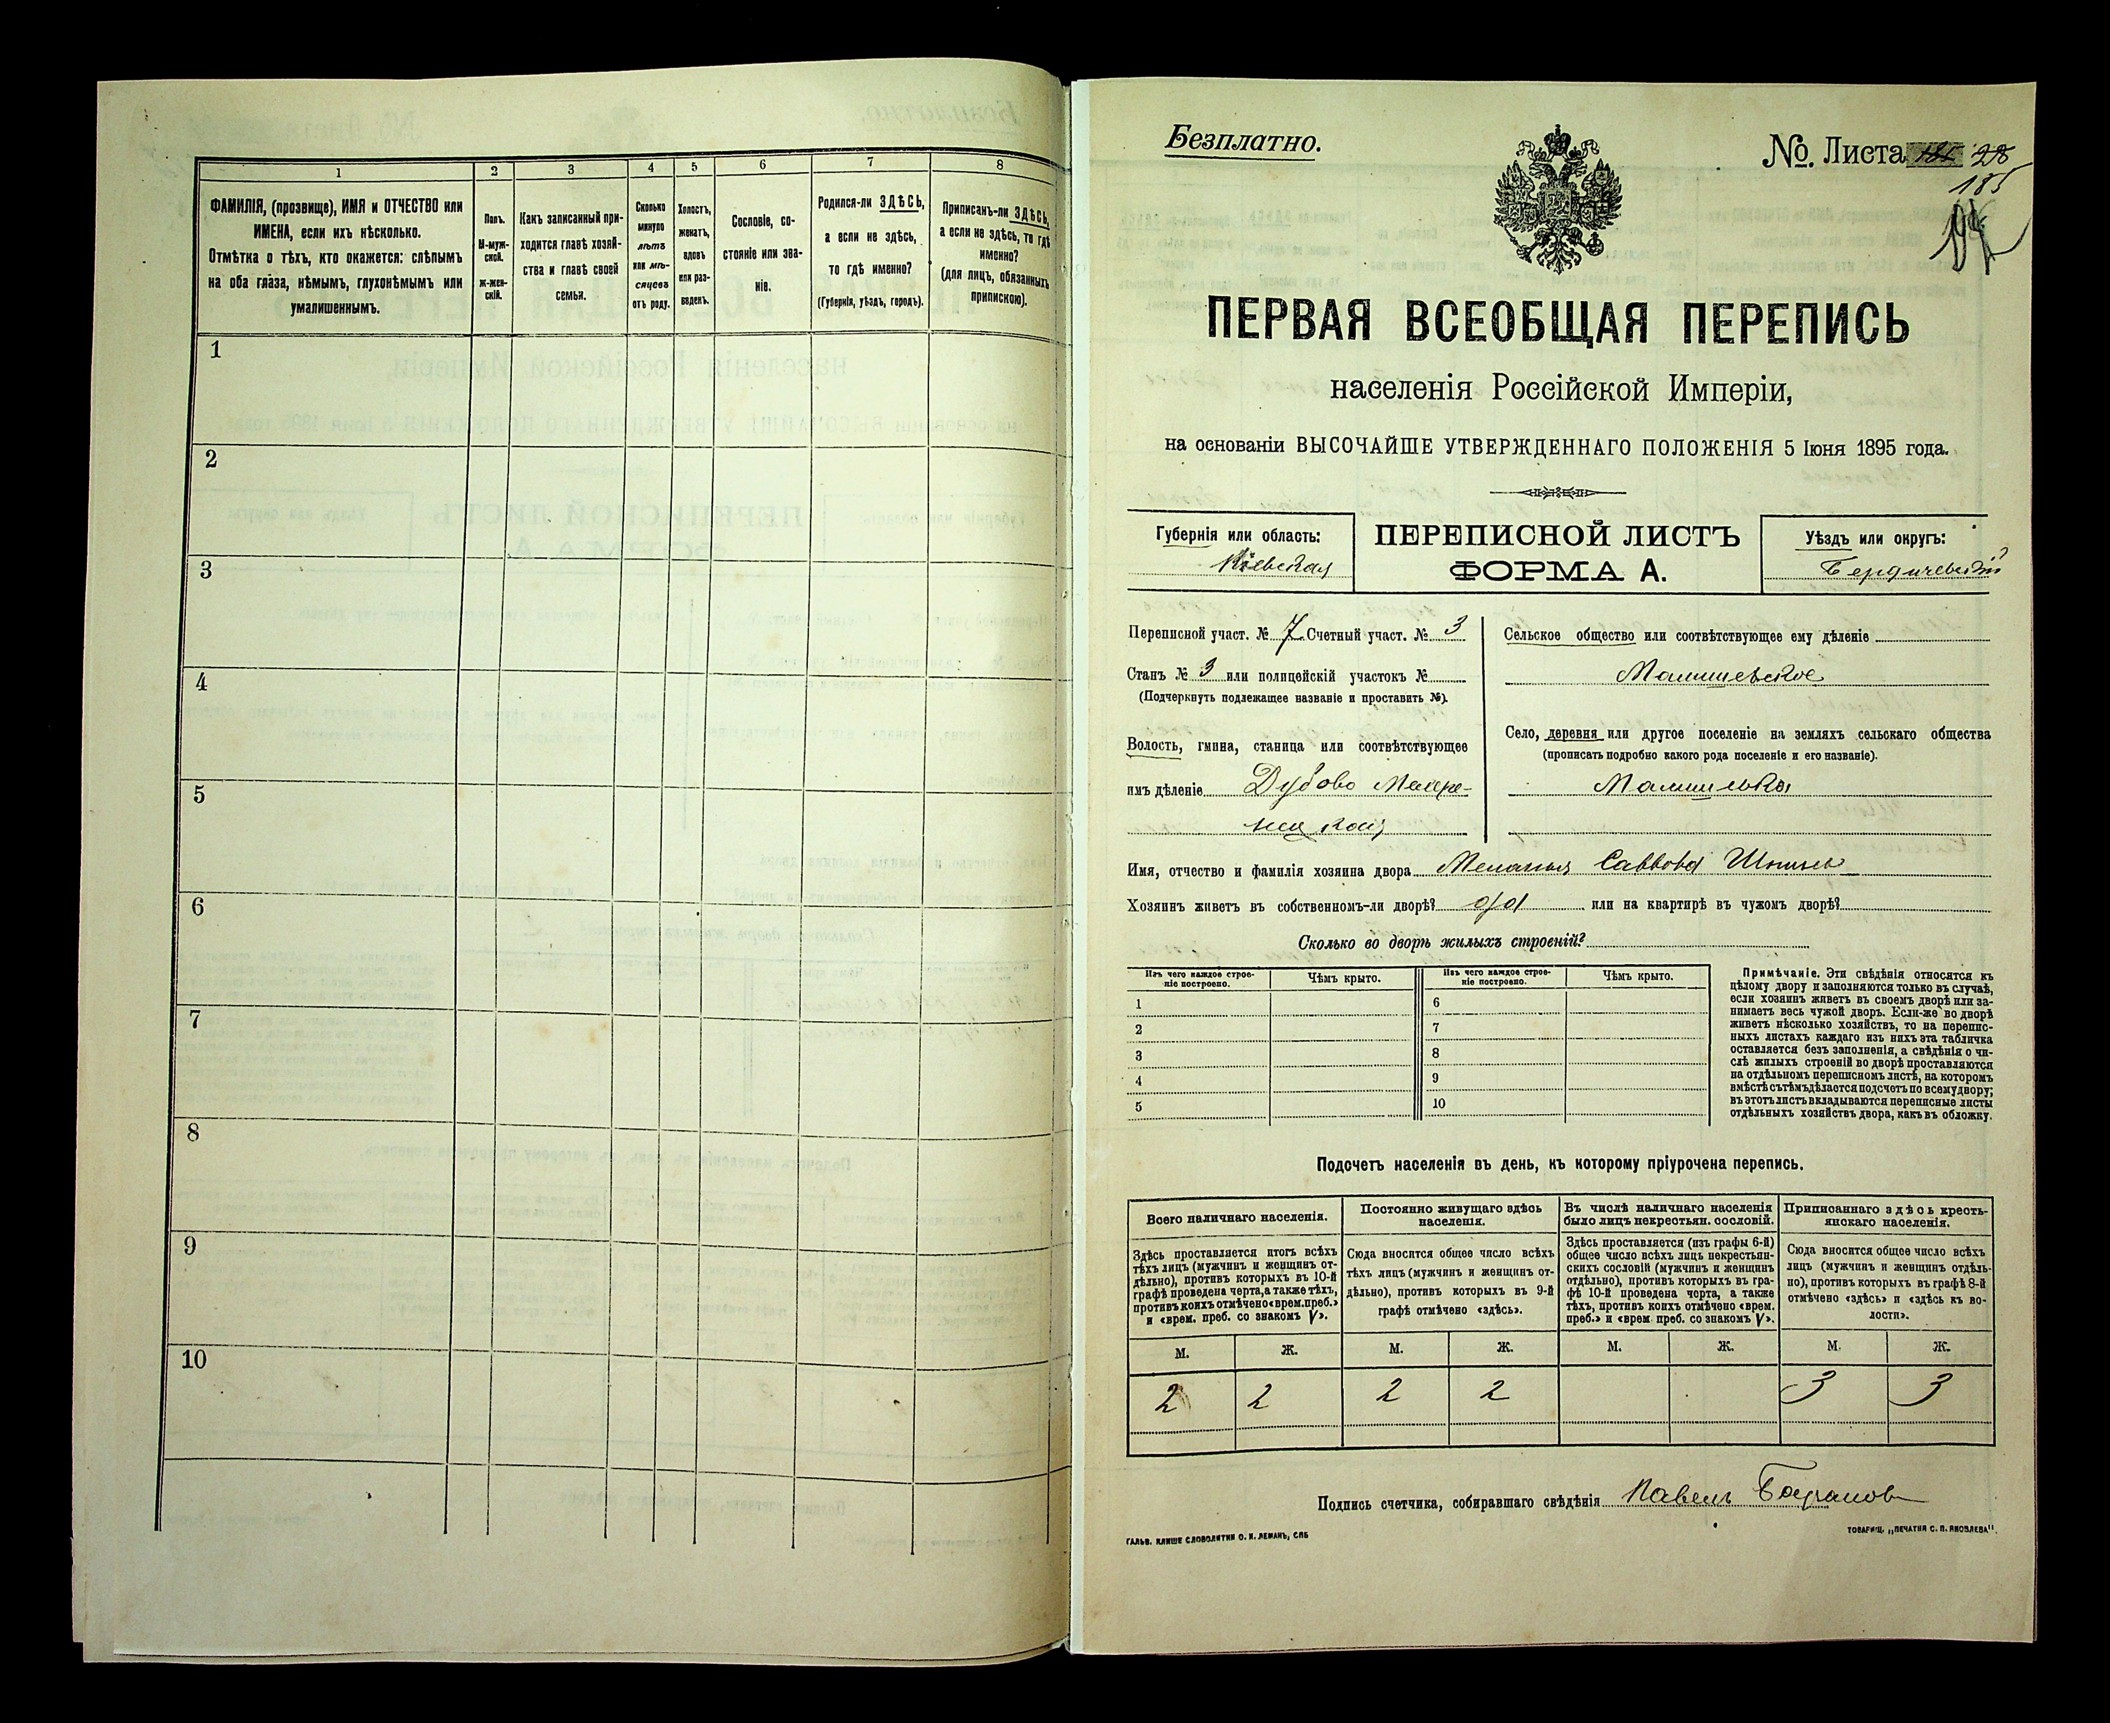 1 2 3 4 5 6 7 8
ФАМИЛІЯ, (прозвище), ИМЯ и ОТЧЕСТВО или
ИМЕНА, если ихъ нѣсколько.
Отмѣтка о тѣхъ, кто окажется: слѣпымъ
на оба глаза, нѣмымъ, глухонѣмымъ или
умалишеннымъ.
Полъ.
М-муж-
ской.
ж-жен-
скій.
Какъ записанный при-
ходится главѣ хозяй-
ства и главѣ своей
семьи.
Сколько
минуло
лѣтъ
или мѣ-
сяцевъ
отъ роду.
Холостъ,
женатъ,
вдовъ
или раз-
веденъ.
Сословіе, со-
стояніе или зва-
ніе.
Родился-ли ЗДѢСЬ,
а если не здѣсь,
то гдѣ именно?
(Губернія, уѣздъ, городъ).
Приписанъ-ли ЗДѢСЬ,
а если не здѣсь, то гдѣ
именно?
(для лицъ, обязанныхъ
припискою).
1
2
3
4
5
6
7
8
9
10
Безплатно.
№. Листа 28
185
ПЕРВАЯ ВСЕОБЩАЯ ПЕРЕПИСЬ
населенія Россійской Имперіи,
на основаніи ВЫСОЧАЙШЕ УТВЕРЖДЕННАГО ПОЛОЖЕНІЯ 5 Іюня 1895 года.
Губернія или область:
Кіевская
ПЕРЕПИСНОЙ ЛИСТЪ
ФОРМА А.
Уѣздъ или округъ:
Бердичевскій
Переписной участ. № 7 Счетный участ. № 3
Станъ № 3 или полицейскій участокъ №
(Подчеркнуть подлежащее названіе и проставить №).
Волость, гмина, станица или соотвѣтствующее
имъ дѣленіе Дубово Махре-
Сельское общество или соотвѣтствующее ему дѣленіе
Село, деревня или другое поселеніе на земляхъ сельскаго общества
(прописать подробно какого рода поселеніе и его названіе).
Имя, отчество и фамилія хозяина двора Меланья Саввова
Хозяинъ живетъ въ собственномъ-ли дворѣ? да или на квартирѣ въ чужомъ дворѣ?
Сколько во дворѣ жилыхъ строеній?
Изъ чего каждое строе-
ніе построено.
Чѣмъ крыто.
1
2
3
4
5
Изъ чего каждое строе-
ніе построено.
Чѣмъ крыто.
6
7
8
9
10
Примѣчаніе. Эти свѣдѣнія относятся къ
цѣлому двору и заполняются только въ случаѣ,
если хозяинъ живетъ въ своемъ дворѣ или за-
нимаетъ весь чужой дворъ. Если-же во дворѣ
живетъ нѣсколько хозяйствъ, то на перепис-
ныхъ листахъ каждаго изъ нихъ эта табличка
оставляется безъ заполненія, а свѣдѣнія о чи-
слѣ жилыхъ строеній во дворѣ проставляются
на отдѣльномъ переписномъ листѣ, на которомъ
вмѣстѣ съ тѣмъ дѣлается подсчетъ по всему двору;
въ этотъ листъ вкладываются переписные листы
отдѣльныхъ хозяйствъ двора, какъ въ обложку.
Подсчетъ населенія въ день, къ которому пріурочена перепись.
Всего наличнаго населенія.
Здѣсь проставляется итогъ всѣхъ
тѣхъ лицъ (мужчинъ и женщинъ от-
дѣльно), противъ которыхъ въ 10-й
графѣ проведена черта, а также тѣхъ,
противъ коихъ отмѣчено «врем. преб.»
и «врем. преб. со знакомъ V».
Постоянно живущаго здѣсь
населенія.
Сюда вносится общее число всѣхъ
тѣхъ лицъ (мужчинъ и женщинъ от-
дѣльно), противъ которыхъ въ 9-й
графѣ отмѣчено «здѣсь».
Въ числѣ наличнаго населенія
было лицъ некрестьян. сословій.
Здѣсь проставляется (изъ графы 6-й)
общее число всѣхъ лицъ некрестьян-
скихъ сословій (мужчинъ и женщинъ
отдѣльно), противъ которыхъ въ гра-
фѣ 10-й проведена черта, а также
тѣхъ, противъ коихъ отмѣчено «врем.
преб.» и «врем преб. со знакомъ V».
Приписаннаго здѣсь кресть-
янскаго населенія.
Сюда вносится общее число всѣхъ
лицъ (мужчинъ и женщинъ отдѣль-
но), противъ которыхъ въ графѣ 8-й
отмѣчено «здѣсь» и «здѣсь къ во-
лости».
М. Ж. М. Ж. М. Ж. М. Ж.
2 2 2 2 3 3
Подпись счетчика, собиравшаго свѣдѣнія Павелъ Барановъ
ГАЛЬВ. КЛИШЕ СЛОВОЛИТНИ О. И. ЛЕМАНЪ, СПБ
ТОВАРИЩ. „ПЕЧАТНЯ С. П. ЯКОВЛЕВА".